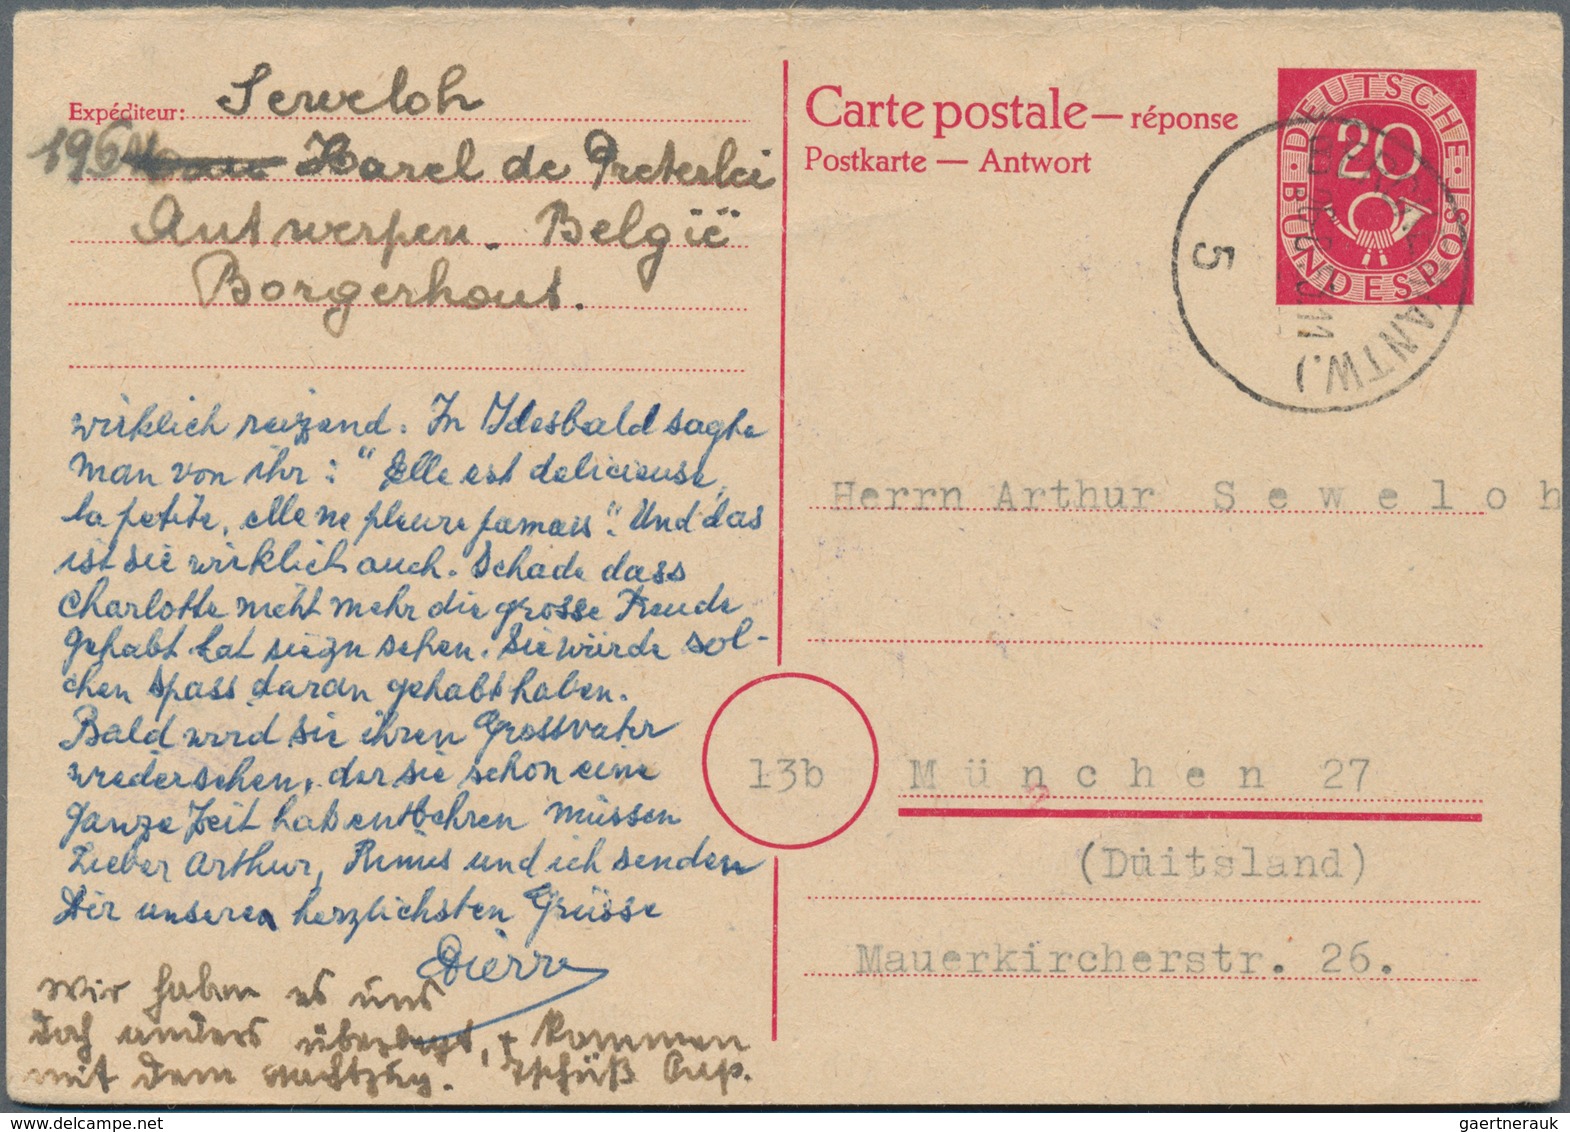 Expéditeur: Seweloh
196 Karel de Preterlei
Antwerpen. België
Borgerhout.
wirklich reizend. In Idesbald sagte
man von ihr: "Elle est delicieuse,
la petite, elle ne pleure jamais". Und das
ist sie wirklich auch. Schade dass
Charlotte nicht mehr die grosse Freude
gehabt hat sie zu sehen. Sie würde sol-
chen Spass daran gehabt haben.
Bald wird sie ihren Grossvater
wiedersehen, der sie schon eine
ganze Zeit hat entbehren müssen
Lieber Arthur, und ich senden
Dir unseren herzlichsten Grüsse
Pierre
Wir haben es uns
doch anders überlegt, + kommen
mit dem Nachtzug. Tschüß
Carte postale — réponse
Postkarte — Antwort
DEUTSCHE BUNDESPOST
20
(ANTW.)
5
11
Herrn Arthur Seweloh
13b München 27
(Düitsland)
Mauerkircherstr. 26.
gaertnerauk @ delcampe.net